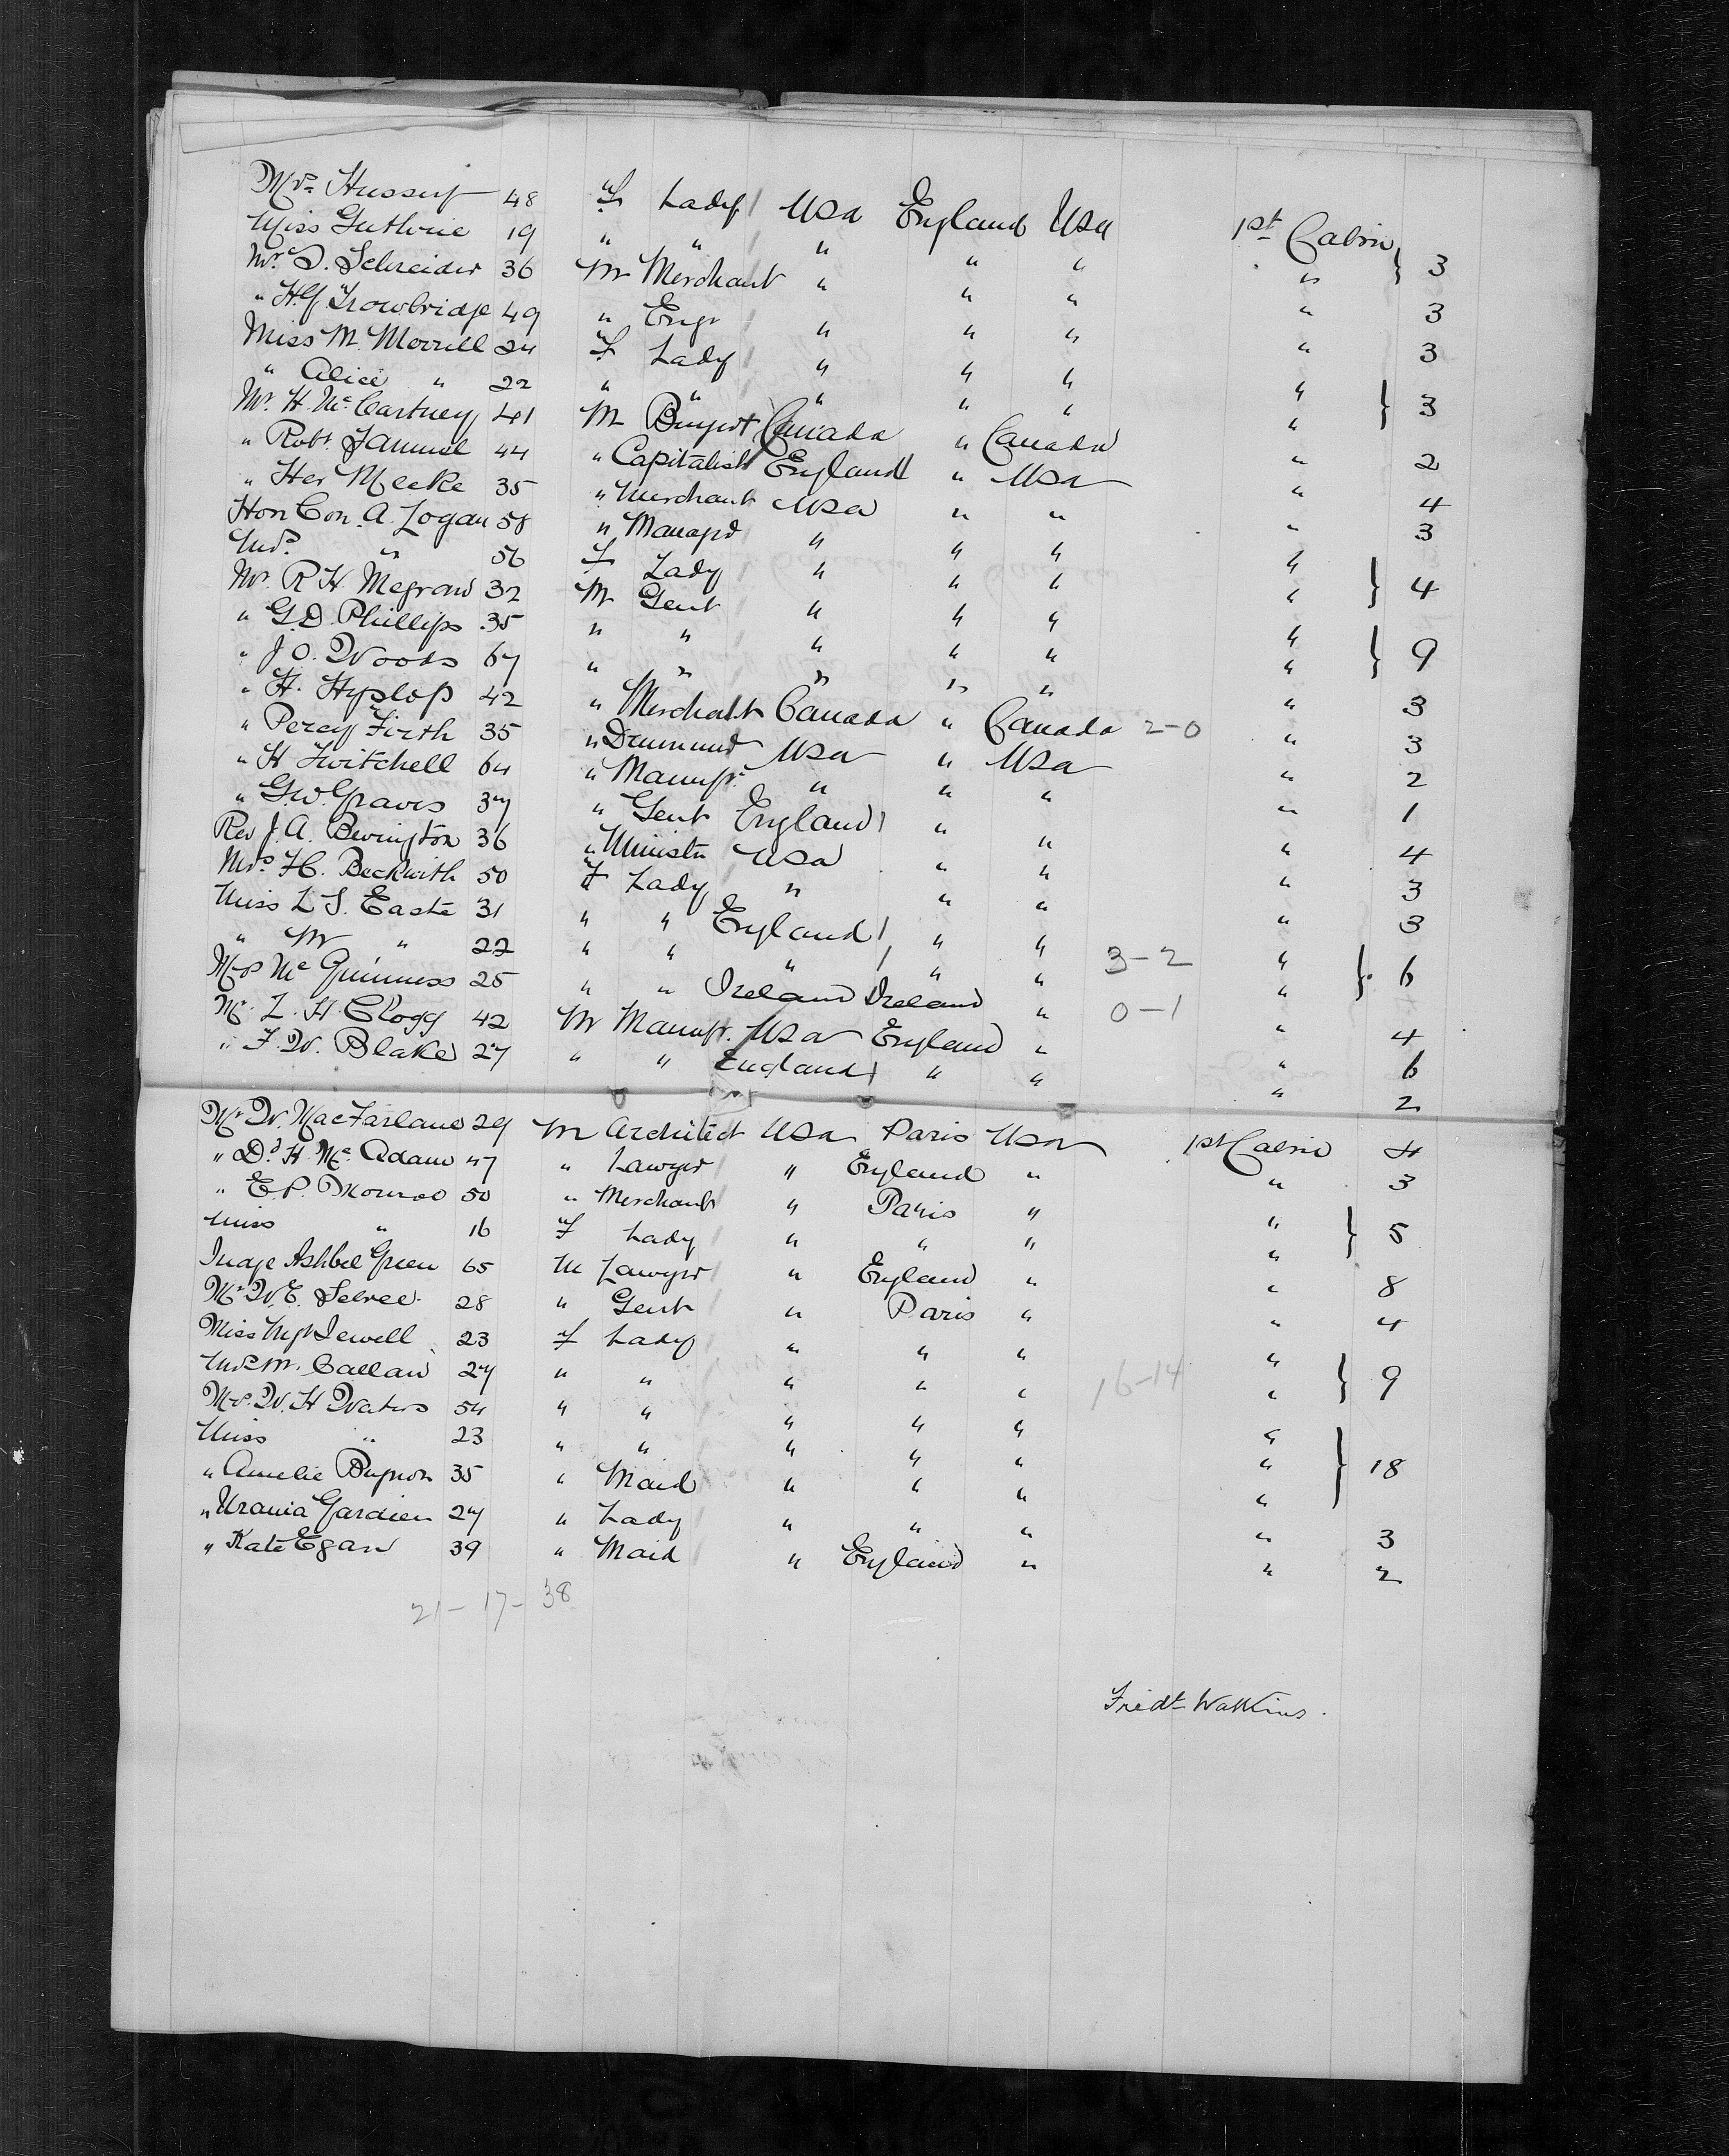 Mrs Hussey 48 F Lady USA England USA 1st Cabin
Miss Guthrie 19 " " " " " " } 3
Mr. D. Schreider 36 M Merchant " " " " 3
" H.G. Trowbridge 49 " Engr " " " " 3
Miss M. Morrill 24 F Lady " " " "
" Alice " 22 " " " " " " } 3
Mr. H. McCartney 41 M Canada " Canada " 2
" Robt. 44 " Capitalist England " USA " 4
" Her Meeke 35 " Merchant USA " " " 3
Hon Con. A. Logan 58 " " " " "
Mrs. " 56 F Lady " " " " } 4
Mr. R. H. Megraw 32 M Gent " " " "
" G.D. Phillips 35 " " " " " " } 9
" J O. Woods 67 " " " " " " 3
" H. Hyslop 42 " Merchant Canada " Canada 2-0 " 3
" Percy Firth 35 " USA " USA " 2
" H Twitchell 64 " Manufr. " " " " 1
" G.W. Graves 37 " Gent England " " " 4
Rev J. A. Bevington 36 " Ministr USA " " " 3
Mrs. H. Beckwith 50 F Lady " " " " 3
Miss L S. Easte 31 " " England " " 3-2 "
" M " 22 " " " " " " } 6
Mrs McGuinness 25 " " Ireland Ireland " 0-1 " 4
Mr. L. H. Clogg 42 M Manufr. USA England " " 6
" F. W. Blake 27 " " England " " " 2
Mr W. MacFarlane 29 M Architect USA Paris USA 1st Cabin 4
" D. H. McAdam 47 " Lawyer " England " " 3
" E P. Monroe 50 " Merchant " Paris " "
Miss " 16 F Lady " " " " } 5
Judge Ashbel Green 65 M Lawyer " England " " 8
Mr W. E. 28 " Gent " Paris " " 4
Miss Jewell 23 F Lady " " " "
Mrs M. Callan 27 " " " " " 16-14 " } 9
Mrs. W. H Waters 54 " " " " " "
Miss " 23 " " " " " " } 18
" Amelie 35 " Maid " " " "
" Urania Gardien 27 " Lady " " " " 3
" Kate Egan 39 " Maid " England " " 2
21-17-38
Fredk Watkins.